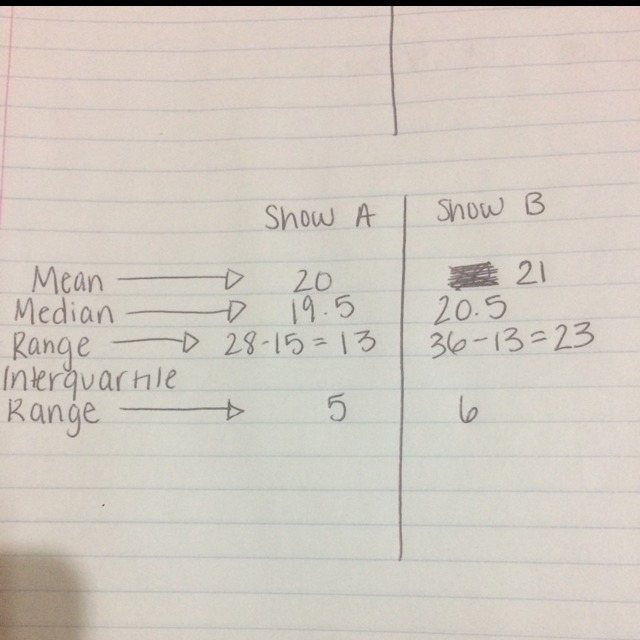 Show A Show B
Mean 20 21
Median 19.5 20.5
Range 28-15=13 36-13=23
Interquartile
Range 5 6